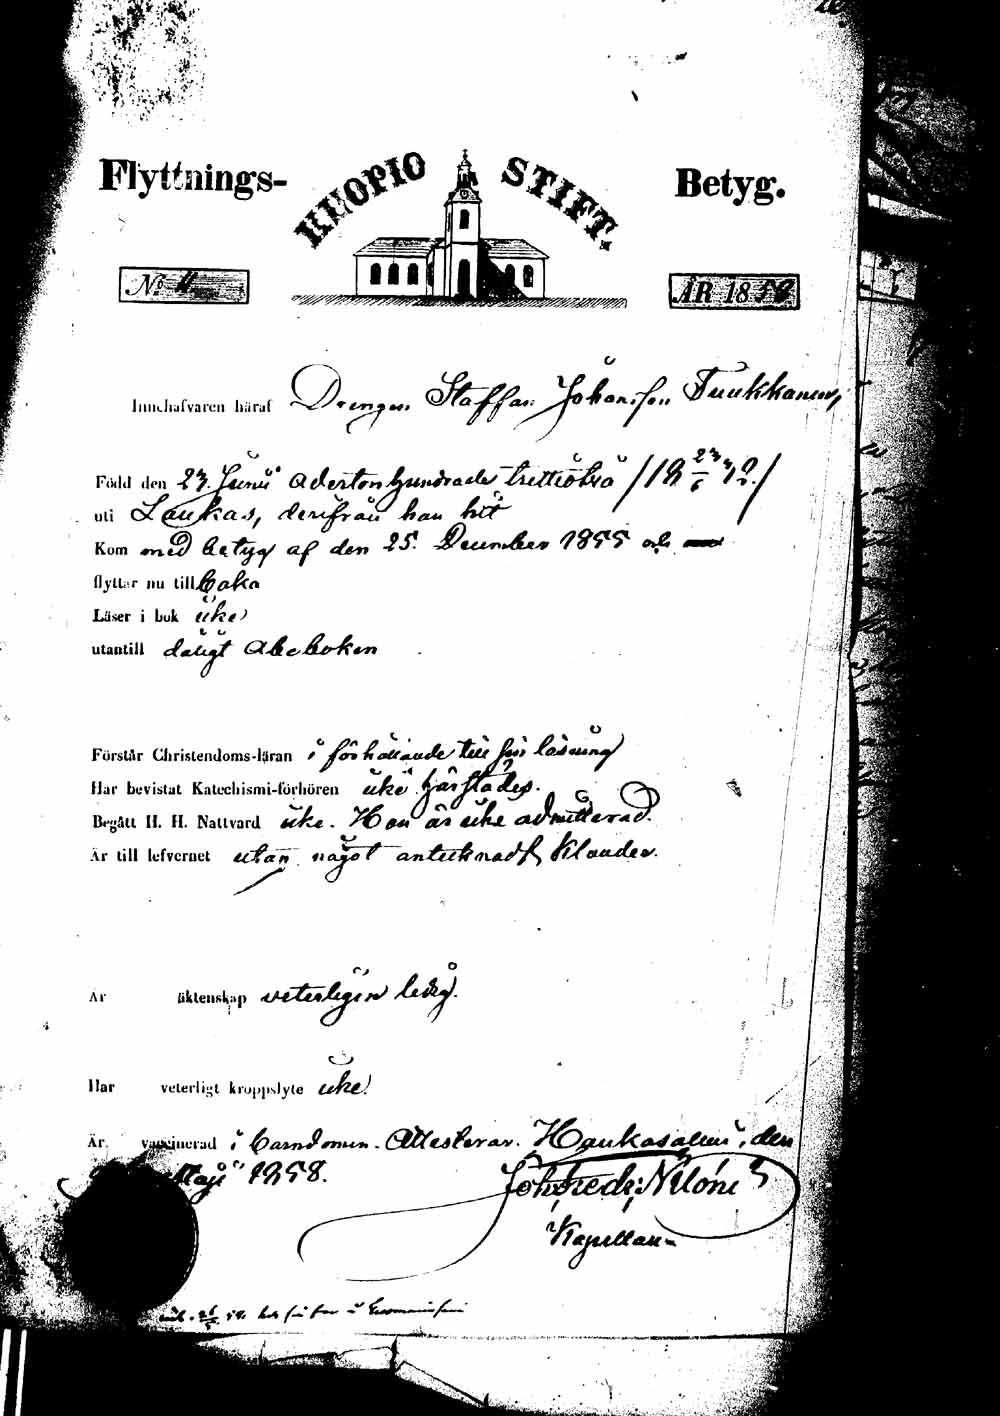 Flyttnings- KUOPIO STIFT. Betyg.
No 11 ÅR 1858
Innehafvaren häraf Drengen Staffan Johansson Tuukkanen,
Född den 23. Junii adertonhundrade trettiotvå /18 23/6 32./
uti Laukas, derifrån han hit
Kom med betyg af den 25. December 1855 och
flyttar nu tillbaka
Läser i bok icke
utantill dåligt Abcboken
Förstår Christendoms-läran i förhållande till sin läsning
Har bevistat Katechismi-förhören icke härstädes.
Begått H. H. Nattvard icke. Han är icke admitterad.
Är till lefvernet utan något antecknadt klander.
Är äktenskap veterligen ledig.
Har veterligt kroppslyte icke.
Är vaccinerad i barndomen. Attesterar. Hankasalmi, den
Maji 1858.
Joh. Fredr: Nylóni
Kapellan